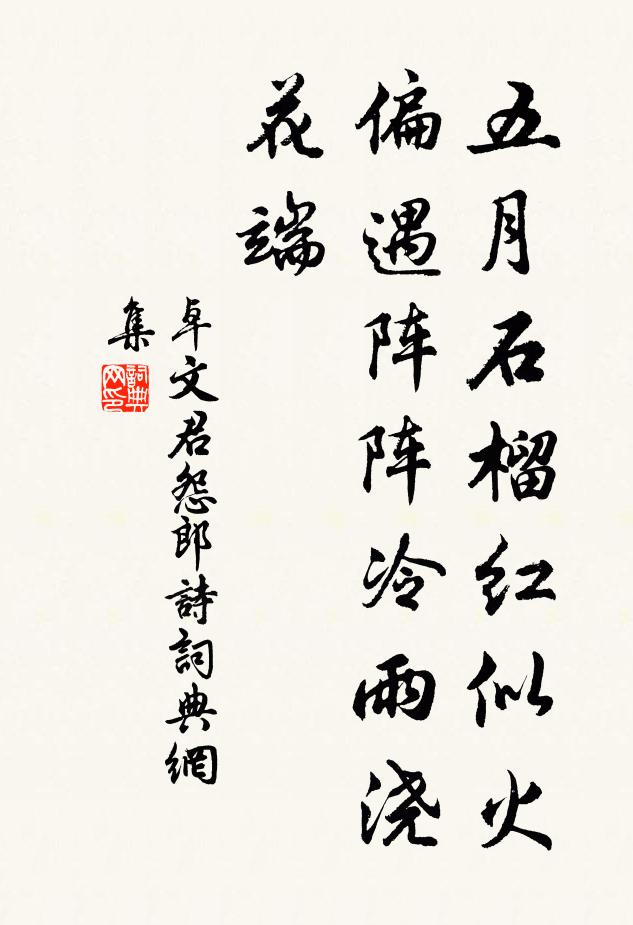 五月石榴红似火
偏遇阵阵冷雨浇
花端
卓文君怨郎詩詞典網
集
詞典
网印